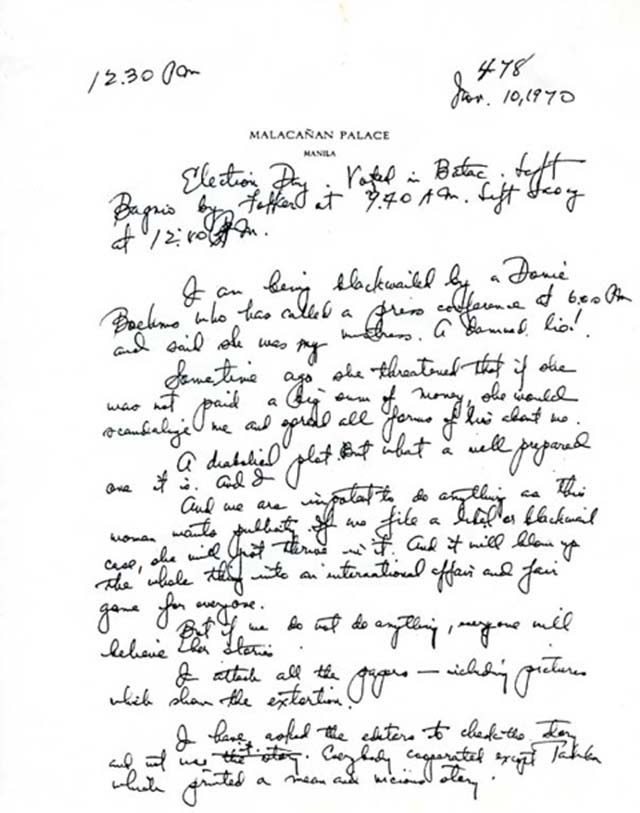 12.30 PM
478
Nov. 10, 1970
MALACAÑAN PALACE
MANILA
Election Day. Voted in Batac. Left
Baguio by Fokker at 9.40 AM. Left Laoag
at 12:00 PM.
I am being blackmailed by a Dovie
Boehms who has called a press conference at 6:00 PM
and said she was my mistress. A damned lie!
Sometime ago she threatened that if she
was not paid a big sum of money, she would
scandalize me and spread all forms of lies about me.
A diabolical plot. But what a well prepared
one it is. And I
And we are impotent to do anything as this
woman wants publicity. If we file a libel or blackmail
case, she will just thrive in it. And it will blow up
the whole thing into an international affair and fair
game for everyone.
But if we do not do anything, everyone will
believe her stories
I attach all the papers — including pictures
which show the extortion.
I have asked the editors to check the story
and not use it. Everybody cooperated except
which printed a mean and vicious story.